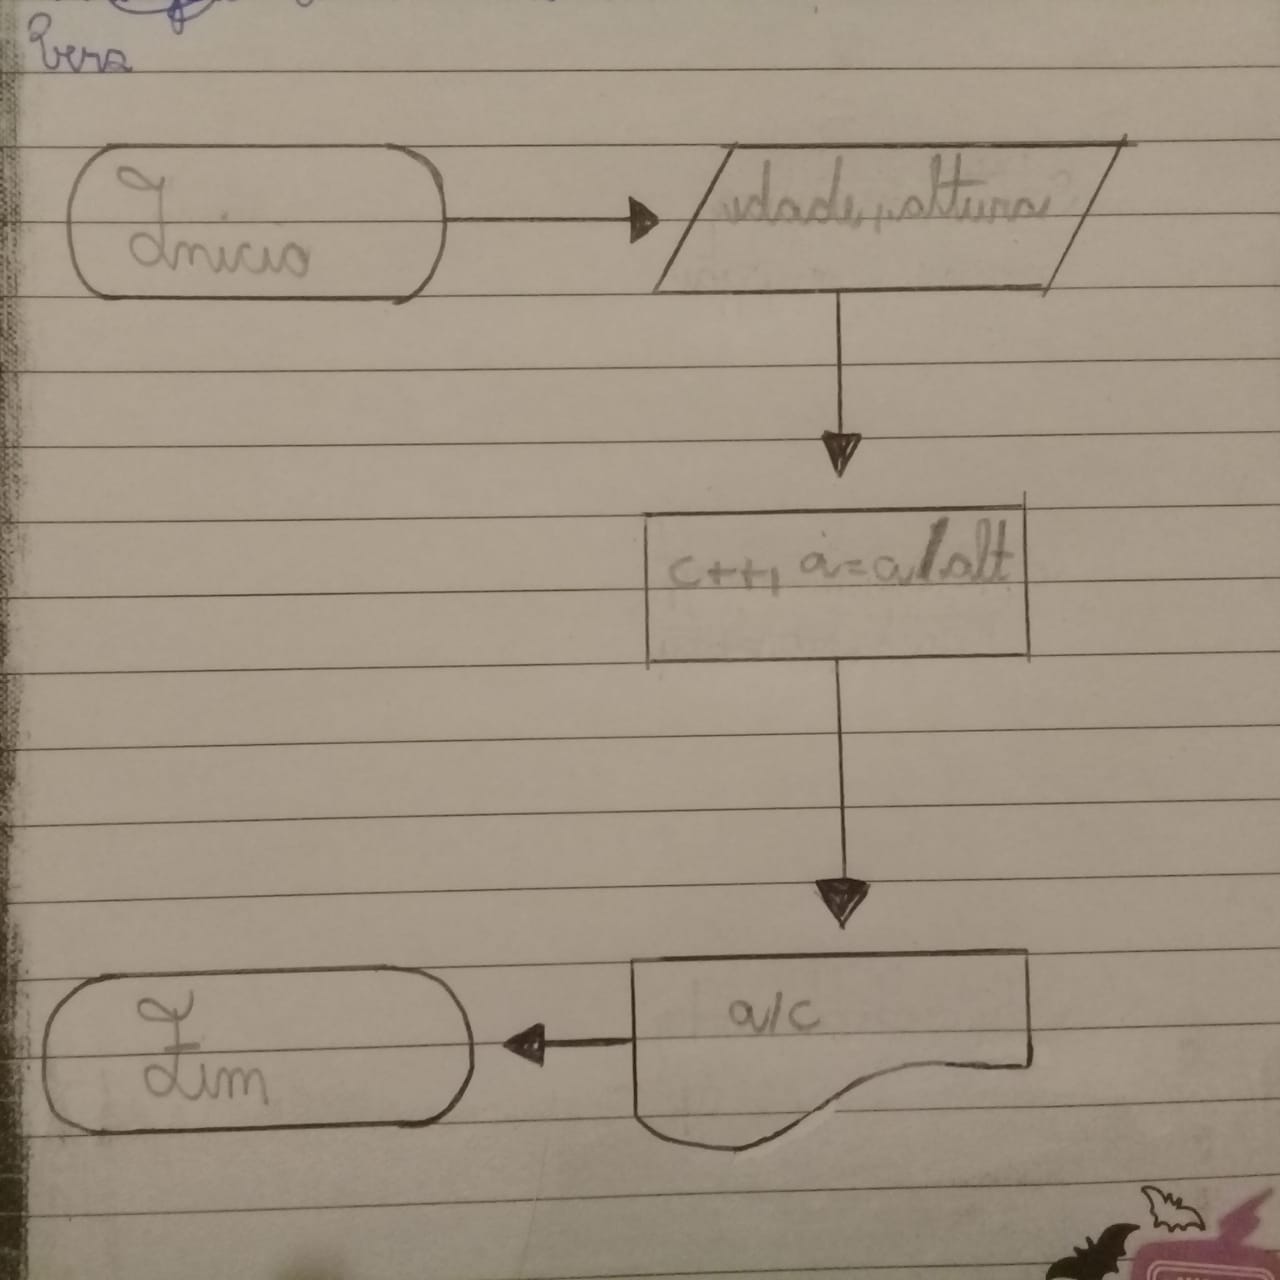 Início
idade, altura
c++, a=a/alt
a/c
Fim